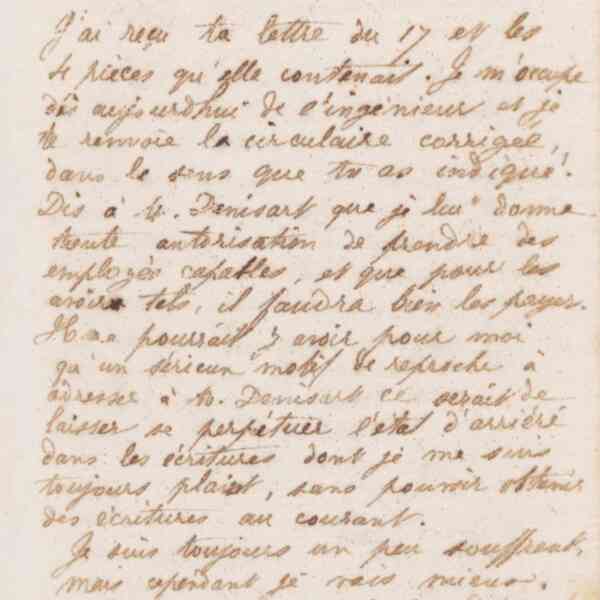 J'ai reçu ta lettre du 17 et les
4 pièces qu'elle contenait. Je m'occupe
dès aujourd'hui de l'ingénieur et je
te renvoie la circulaire corrigée,
dans le sens que tu as indiqué.
Dis à M. Denisart que je lui donne
toute autorisation de prendre des
employés capables, et que pour les
avoir tels, il faudra bien les payer.
Il ne pourrait y avoir pour moi
qu'un sérieux motif de reproche à
adresser à M. Denisart ce serait de
laisser se perpétuer l'état d'arriéré
dans les écritures dont je me suis
toujours plaint, sans pouvoir obtenir
des écritures au courant.
Je suis toujours un peu souffrant,
mais cependant je vais mieux.